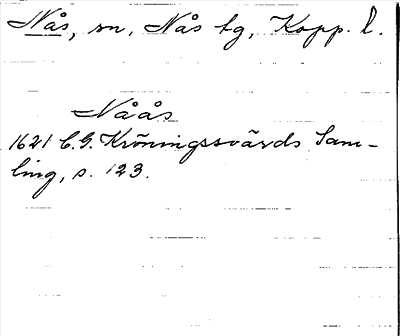 Nås, sn, Nås tg, Kopp. l.
Nåås
1621 C.G. Kröningssvärds Sam-
ling, s. 123.